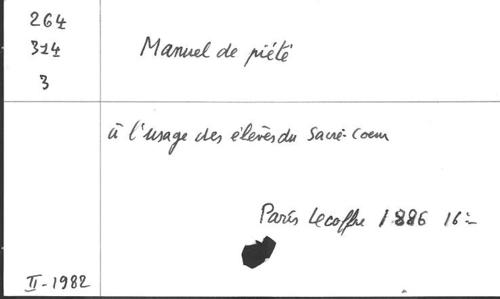 264
314
3
Manuel de piété
à l'usage des élèves du Sacré-Coeur
Paris Lecoffre 1886 16º
II-1982